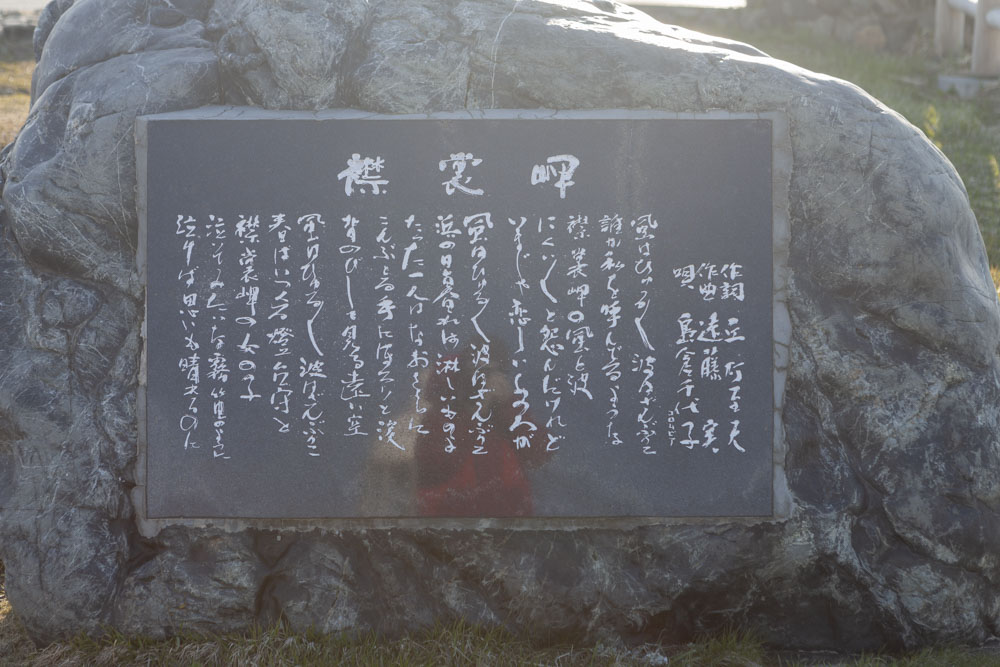 襟裳岬
作詞 丘 灯至夫
作曲 遠藤 実
唄 島倉千代子
コロムビア
風はひゅる〳〵 波はざんぶりこ
誰か私を呼んでるような
襟裳岬の風と波
にくい〳〵と怨んだけれど
いまじゃ恋しいこころが
風はひゅる〳〵 波はざんぶりこ
浜の日暮れは淋しいものよ
たった一人はなおさらに
こんぶとる手にほろりと涙
背のびして見る遠い空
風はひゅる〳〵 波はざんぶりこ
春はいつ来る燈台守と
襟裳岬の女の子
泣いてみたいな霧笛のように
泣けば思いも晴れるのに